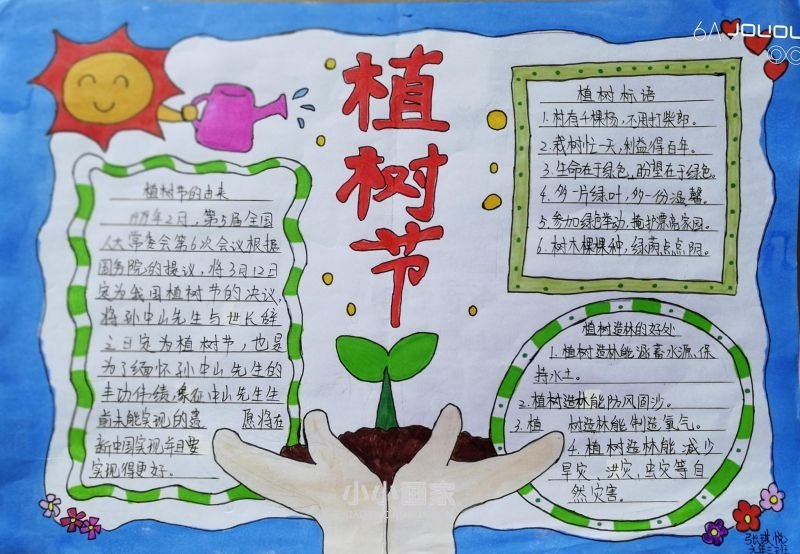 植树节
植树节的由来
1979年2月，第5届全国
人大常委会第6次会议根据
国务院的提议，将3月12日
定为我国植树节的决议，
将孙中山先生与世长辞
之日定为植树节，也是
为了缅怀孙中山先生的
丰功伟绩，象征中山先生生
前未能实现的遗 愿将在
新中国实现并且要
实现得更好。
植树标语
1.村有千棵杨，不用打柴郎。
2.栽树忙一天，利益得百年。
3.生命在于绿色，盼望在于绿色。
4.多一片绿叶，多一份温馨。
5.参加绿色举动，掩护漂亮家园。
6.树木棵棵种，绿雨点点阴。
植树造林的好处
1.植树造林能涵蓄水源、保
持水土。
2.植树造林能防风固沙。
3.植 树造林能制造氧气。
4.植树造林能减少
旱灾、洪灾，虫灾等自
然灾害。
小小画家
6A JOLOL